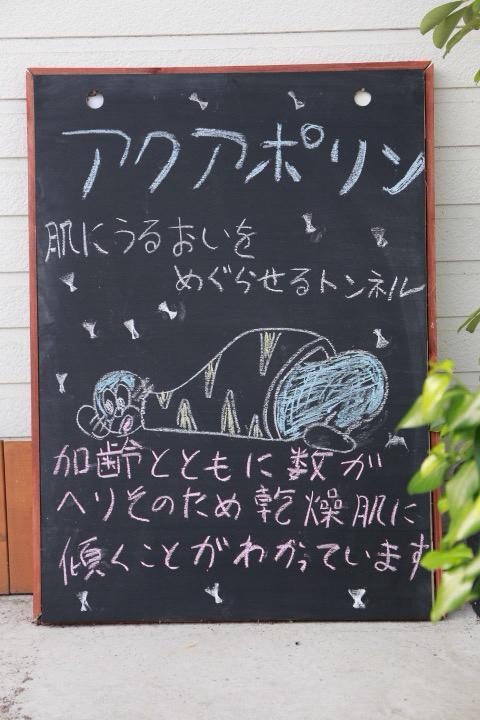 アクアポリン
肌にうるおいを
めぐらせるトンネル
加齢とともに数が
ヘリそのため乾燥肌に
傾くことがわかっています